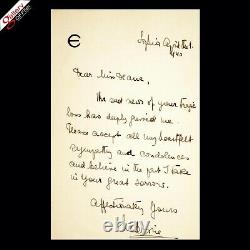 €
Sofia April 1st
Dear Miss Deane,
The sad news of your tragic
loss has deeply grieved me
Please accept all my heartfelt
sympathy and condolences
and believe in the part I take
in your great sorrow.
Affectionately Yours